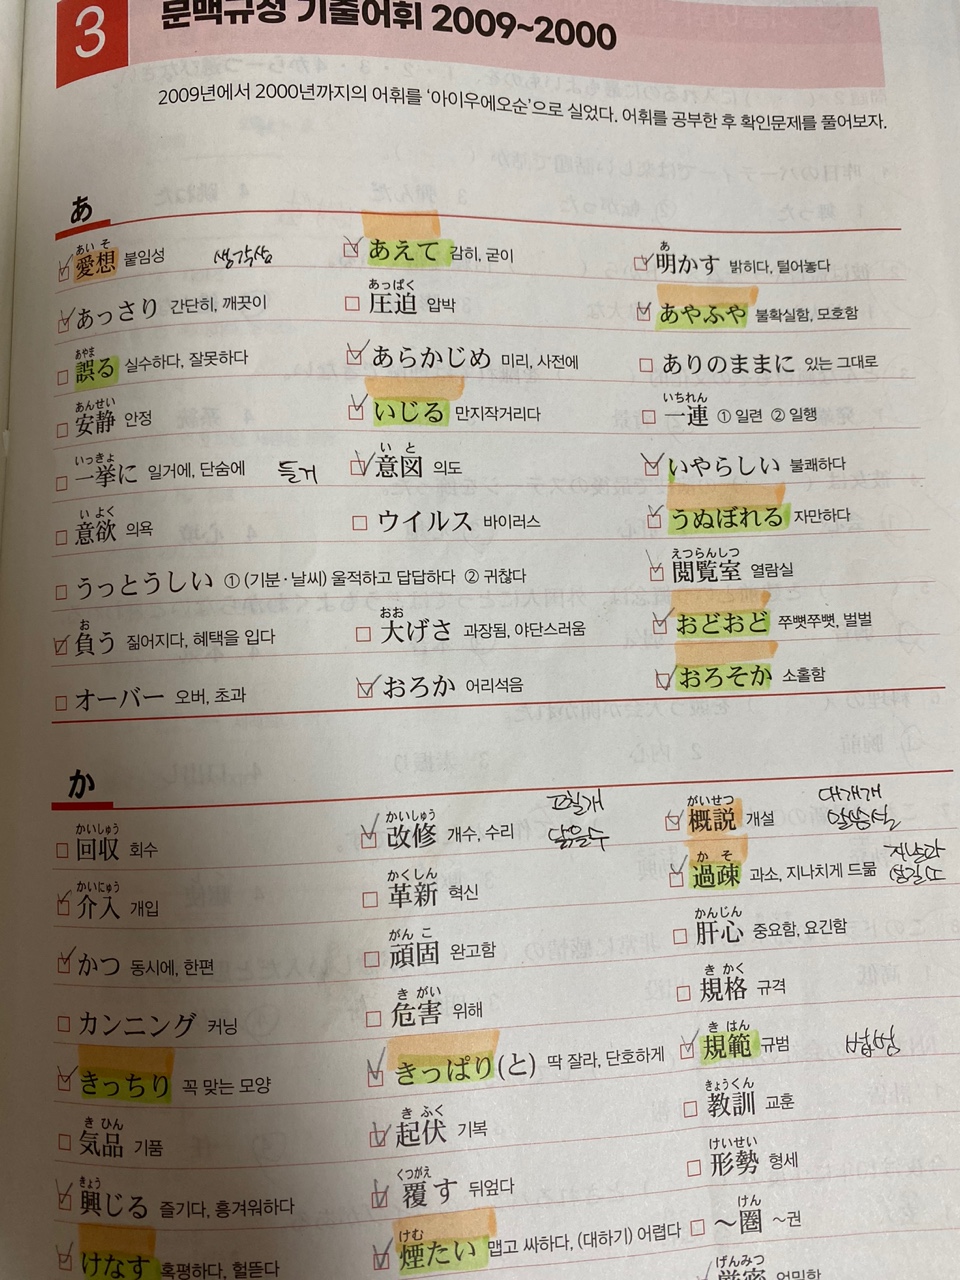 3 문맥규정 기출어휘 2009~2000
2009년에서 2000년까지의 어휘를 ‘아이우에오순’으로 실었다. 어휘를 공부한 후 확인문제를 풀어보자.
あ
あいそ あ
愛想 붙임성 생각상 あえて 감히, 굳이 明かす 밝히다, 털어놓다
あっぱく
あっさり 간단히, 깨끗이 圧迫 압박 あやふや 불확실함, 모호함
あやま
誤る 실수하다, 잘못하다 あらかじめ 미리, 사전에 ありのままに 있는 그대로
あんせい いちれん
安静 안정 いじる 만지작거리다 一連 ① 일련 ② 일행
いっきょ いと
一挙に 일거에, 단숨에 들거 意図 의도 いやらしい 불쾌하다
いよく
意欲 의욕 ウイルス 바이러스 うぬぼれる 자만하다
えつらんしつ
うっとうしい ① (기분·날씨) 울적하고 답답하다 ② 귀찮다 閲覧室 열람실
お おお
負う 짊어지다, 혜택을 입다 大げさ 과장됨, 야단스러움 おどおど 쭈뼛쭈뼛, 벌벌
オーバー 오버, 초과 おろか 어리석음 おろそか 소홀함
か
かいしゅう かいしゅう 고칠개 がいせつ 대개개
回収 회수 改修 개수, 수리 닦을수 概説 개설 말씀설
かいにゅう かくしん かそ 지날과
介入 개입 革新 혁신 過疎 과소, 지나치게 드묾 성길소
がんこ かんじん
かつ 동시에, 한편 頑固 완고함 肝心 중요함, 요긴함
きがい きかく
カンニング 커닝 危害 위해 規格 규격
きはん
きっちり 꼭 맞는 모양 きっぱり(と) 딱 잘라, 단호하게 規範 규범 법범
きひん きふく きょうくん
気品 기품 起伏 기복 教訓 교훈
きょう くつがえ けいせい
興じる 즐기다, 흥겨워하다 覆す 뒤엎다 形勢 형세
けむ けん
けなす 혹평하다, 헐뜯다 煙たい 맵고 싸하다, (대하기) 어렵다 ～圏 ~권
げんみつ
厳密 엄밀함